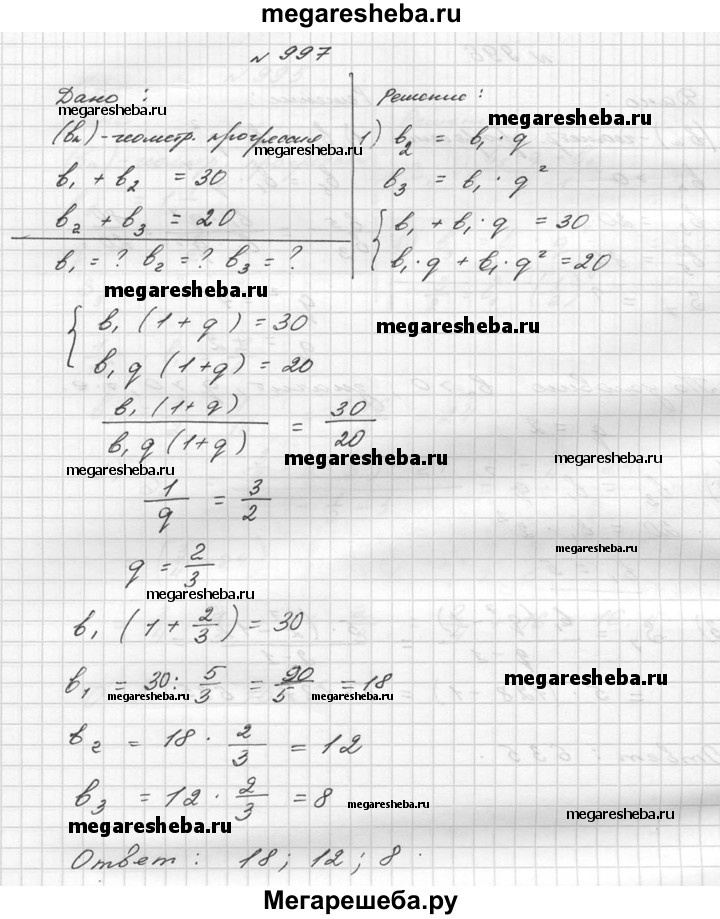 megaresheba.ru
№ 997
Дано :
megaresheba.ru
(bn) - геометр. прогрессия
megaresheba.ru
b₁ + b₂ = 30
b₂ + b₃ = 20
b₁ = ? b₂ = ? b₃ = ?
Решение :
megaresheba.ru
1) b₂ = b₁ · q
b₃ = b₁ · q²
{ b₁ + b₁ · q = 30
b₁ · q + b₁ · q² = 20
megaresheba.ru
megaresheba.ru
{ b₁ (1 + q) = 30
b₁ q (1 + q) = 20
b₁ (1 + q) / b₁ q (1 + q) = 30 / 20
megaresheba.ru
megaresheba.ru
megaresheba.ru
1/q = 3/2
megaresheba.ru
q = 2/3
megaresheba.ru
b₁ (1 + 2/3) = 30
megaresheba.ru
b₁ = 30 : 5/3 = 90/5 = 18
megaresheba.ru
megaresheba.ru
b₂ = 18 · 2/3 = 12
b₃ = 12 · 2/3 = 8
megaresheba.ru
megaresheba.ru
megaresheba.ru
Ответ : 18 ; 12 ; 8 .
Мегарешеба.ру